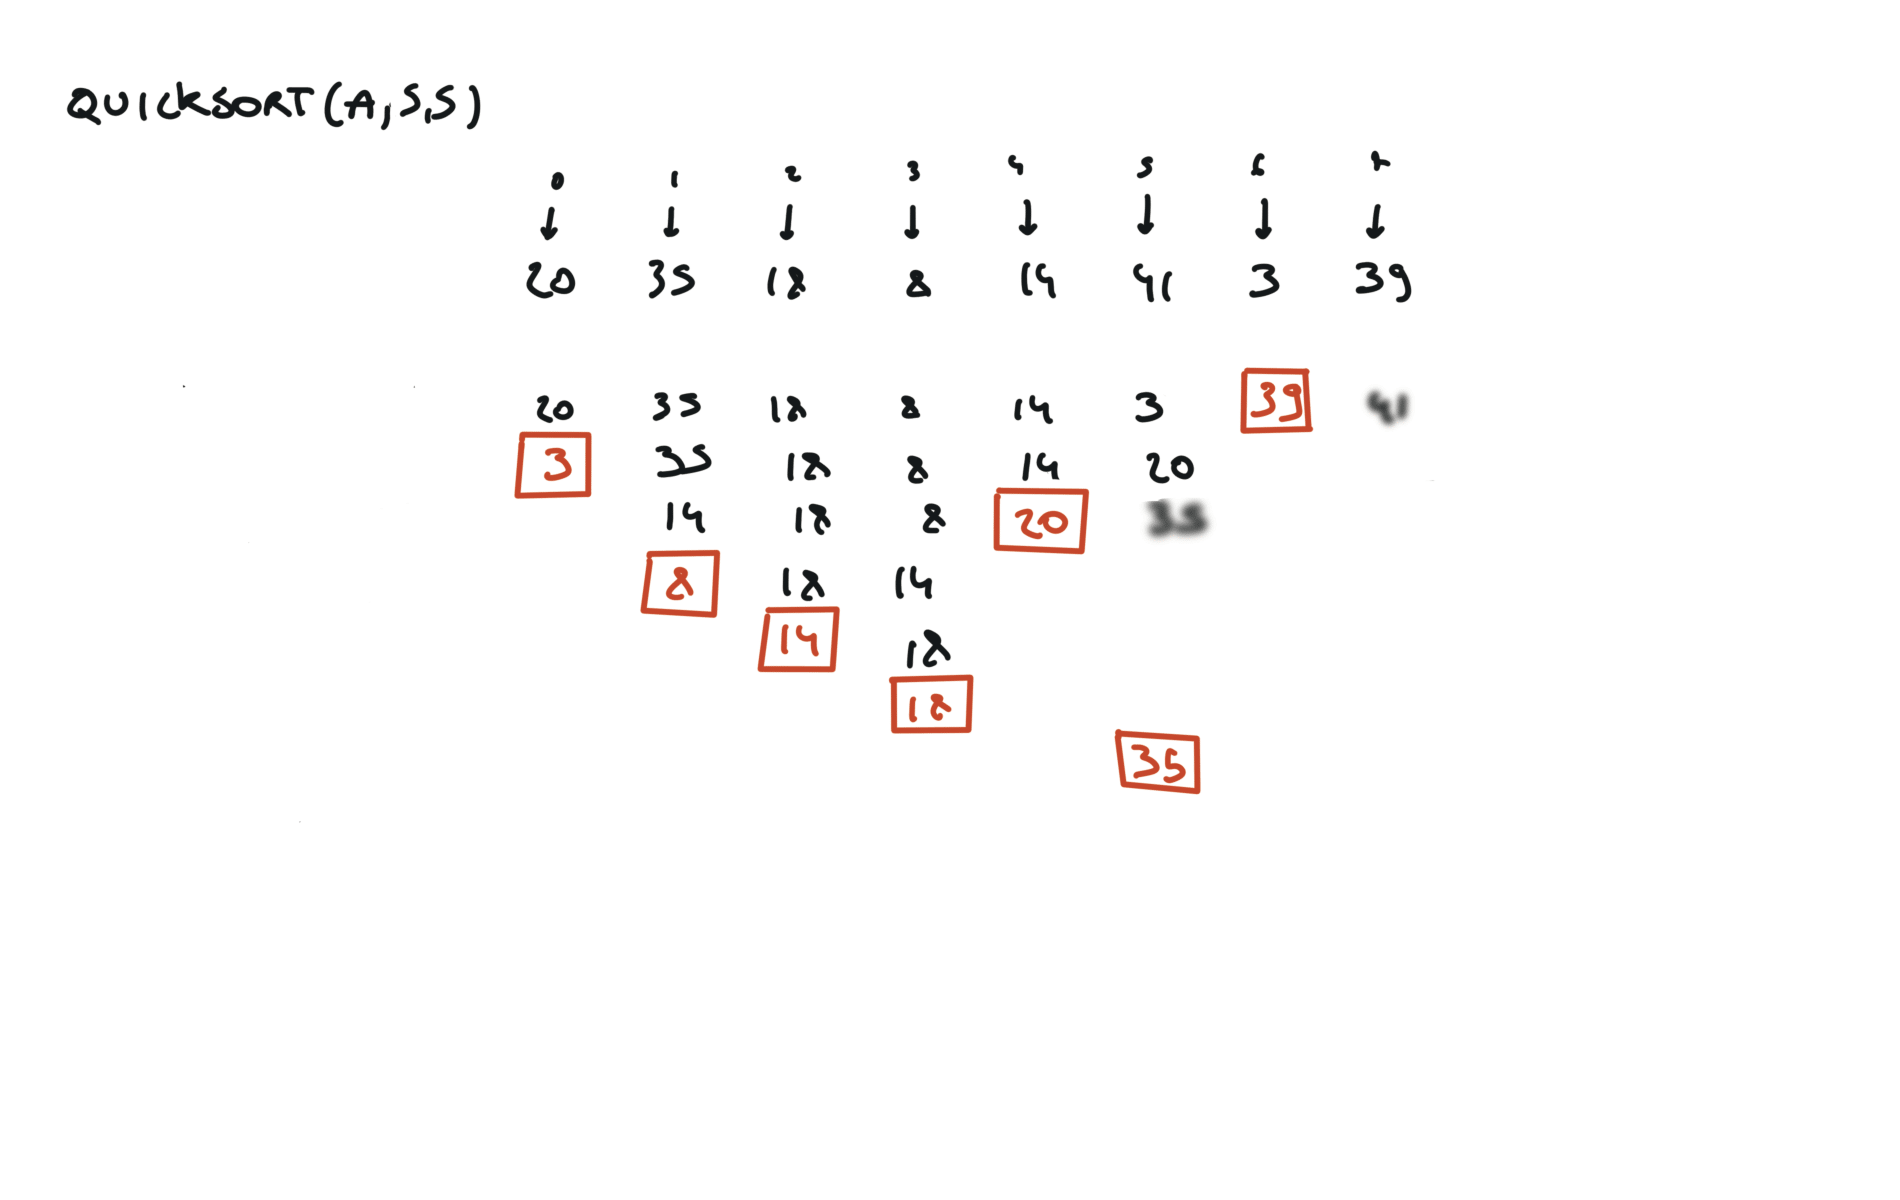 QUICKSORT(A,5,5)
0 1 2 3 4 5 6 7
20 35 18 8 14 41 3 39
20 35 18 8 14 3 39 41
3 35 18 8 14 20
14 18 8 20 35
8 18 14
14
18
18
35